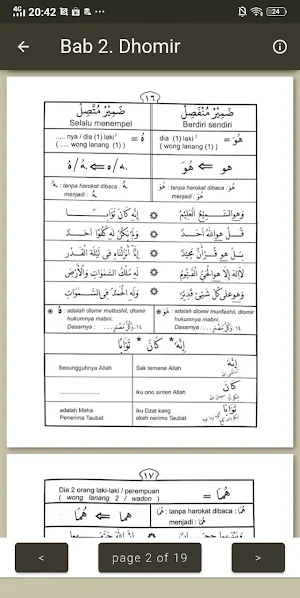 4G 20:42 24
Bab 2. Dhomir
١٦
ضَمِيْرْ مُتَّصِلْ ضَمِيْرْ مُنْفَصِلْ
Selalu menempel Berdiri sendiri
..... nya / dia (1) laki² = هُ dia (1) laki² = هُوَ
( ..... wong lanang (1) ) ( wong lanang (1) )
هُ / ـهُ ⇐ ه / ـه هُوَ ⇐ هو
: tanpa harokat dibaca : : tanpa harokat dibaca :
menjadi : menjadi :
إِنَّهُ كَانَ تَوَّابًا وَهُوَ السَّمِيْعُ الْعَلِيْمُ
وَلَمْ يَكُنْ لَهُ كُفُوًا أَحَدٌ قُلْ هُوَ اللهُ أَحَدٌ
إِنَّا أَنْزَلْنَاهُ فِي لَيْلَةِ الْقَدْرِ بَلْ هُوَ قُرْآنٌ مَجِيْدٌ
لَهُ مُلْكُ السَّمٰوَاتِ وَالْأَرْضِ لَا إِلٰهَ إِلَّا هُوَ الْحَيُّ الْقَيُّوْمُ
وَلَهُ الْحَمْدُ فِي السَّمٰوَاتِ وَهُوَ عَلَى كُلِّ شَيْءٍ قَدِيْرٌ
هُ : adalah dlomir muttashil, dlomir هُوَ : adalah dlomir munfashil, dlomir
hukumnya mabni. hukumnya mabni.
Dasarnya : Dasarnya :
إِنَّهُ * كَانَ * تَوَّابًا
Sesungguhnya Allah Sak temene Allah إِنَّهُ
.................... iku ono sinten Allah كَانَ
adalah Maha iku Dzat kang تَوَّابًا
Penerima Taubat akeh narimo Taubat
١٧
Dia 2 orang laki-laki / perempuan = هُمَا
( wong lanang 2 / wadon )
هُمَا ⇐ هما : tanpa harokat dibaca : هُمَا
menjadi : هُمَا
< page 2 of 19 >